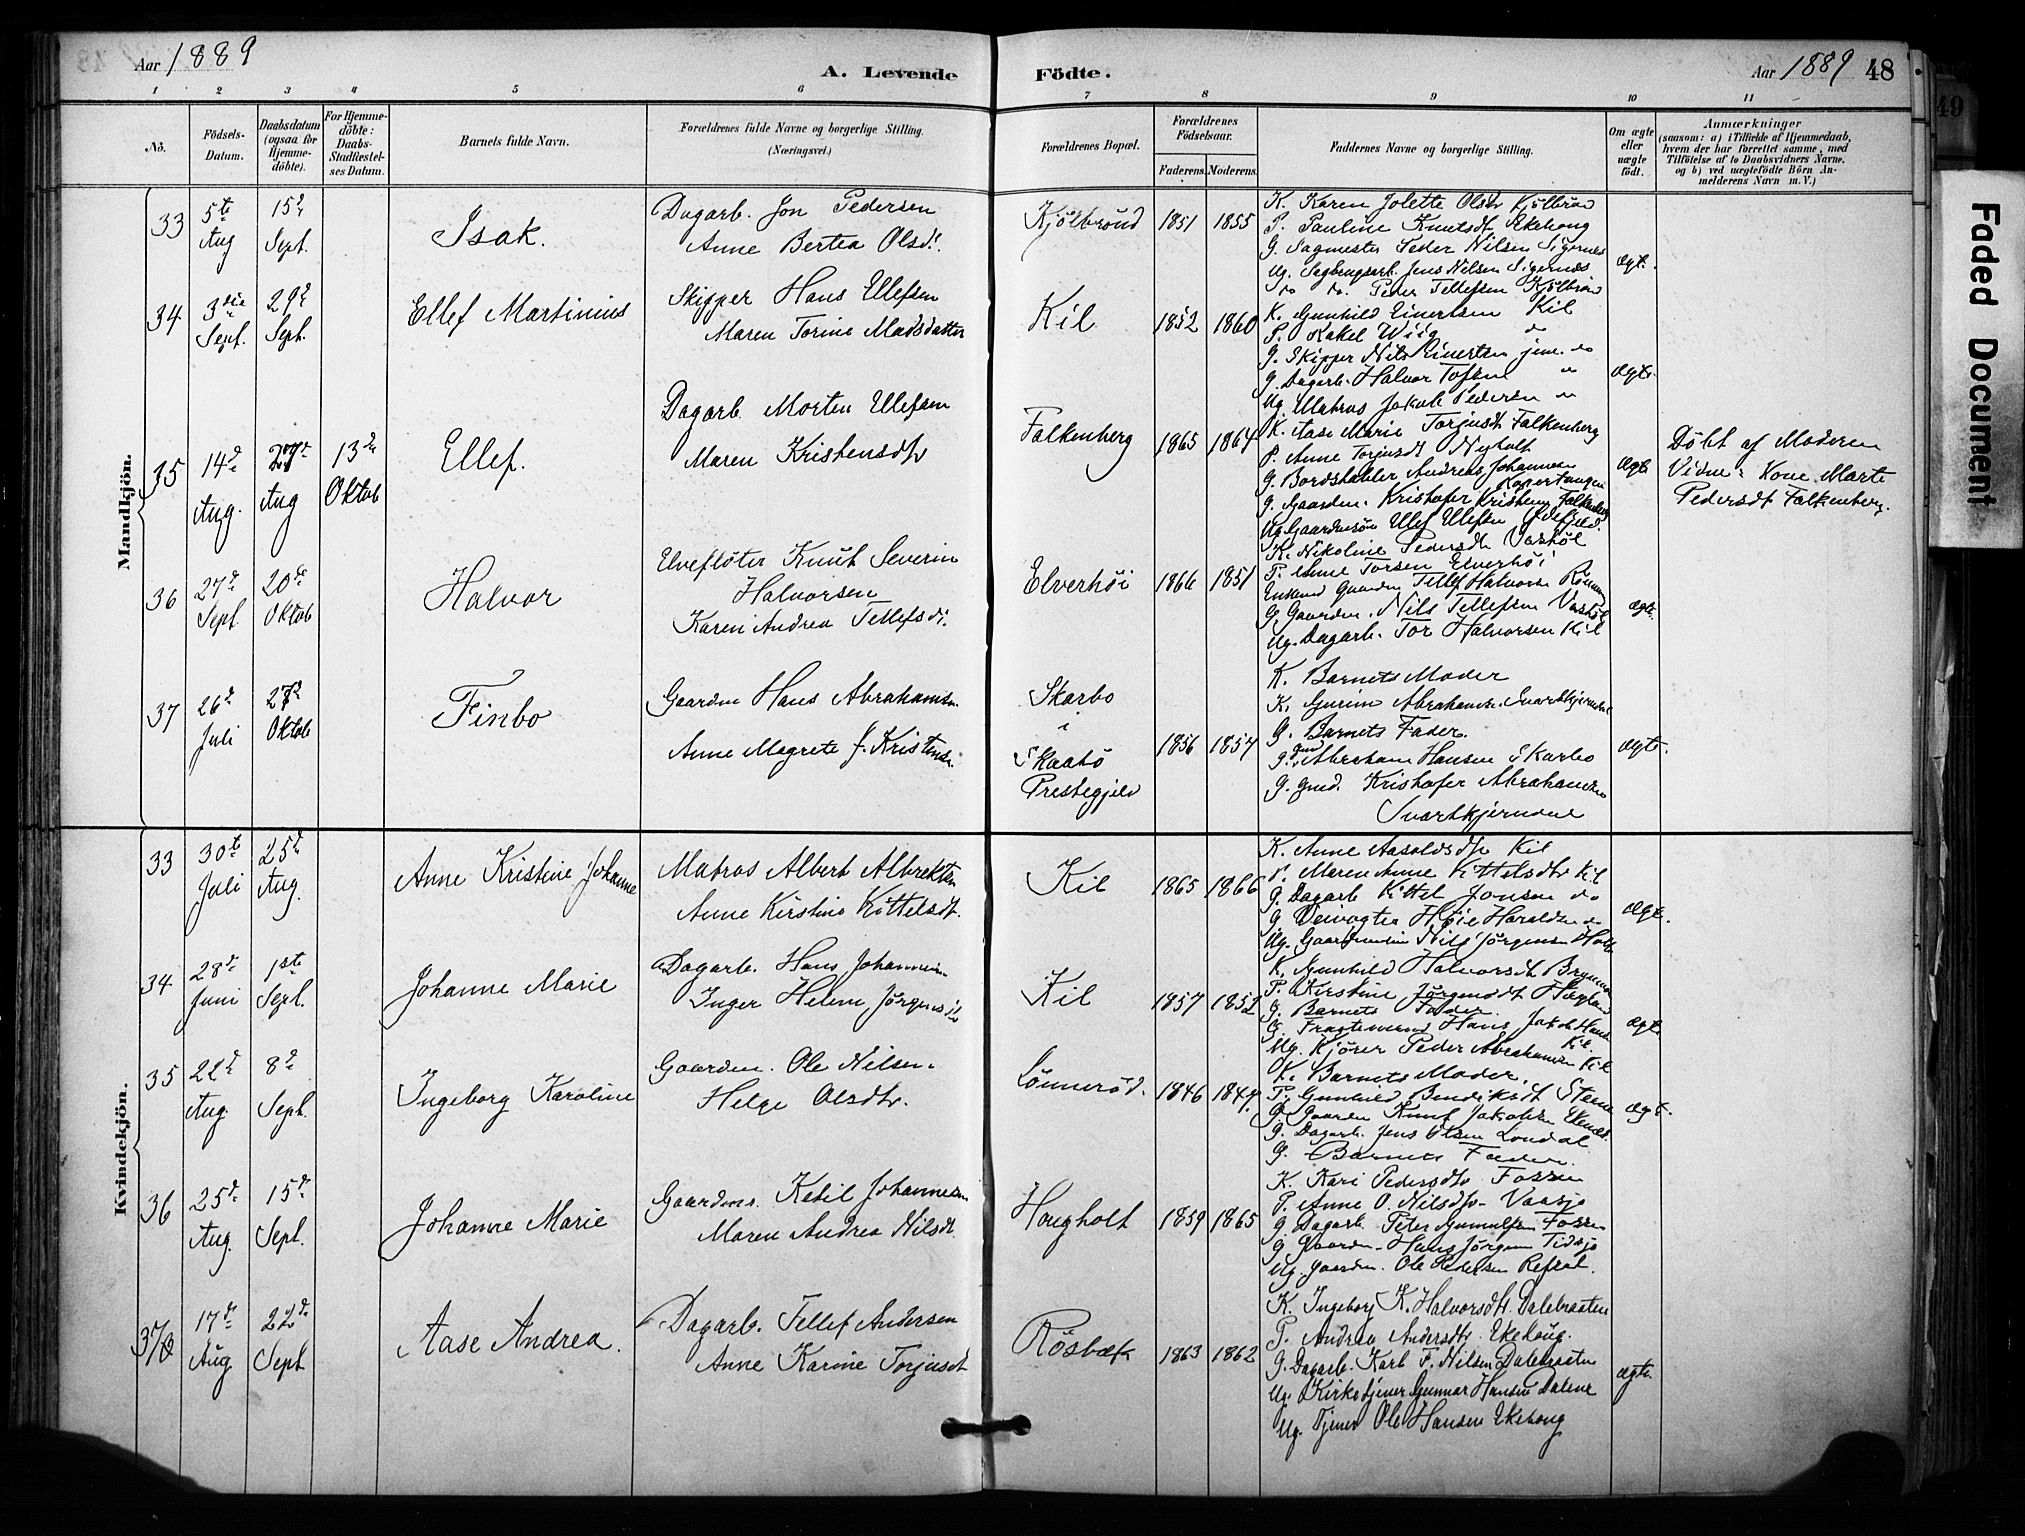 Aar 1889
A. Levende
Födte.
Aar 1889
48
49
Faded Document
1 2 3 4 5 6 7 8 9 10 11
No.
Födsels-
Datum.
Daabsdatum
(ogsaa for
Hjemme-
döbte).
For Hjemme-
döbte:
Daabs-
Stadfæstel-
ses Datum.
Barnets fulde Navn.
Forældrenes fulde Navne og borgerlige Stilling.
(Næringsvei.)
Forældrenes Bopæl.
Forældrenes
Födselsaar.
Faderens. Moderens.
Faddernes Navne og borgerlige Stilling.
Om ægte
eller
uægte
födt.
Anmærkninger
(saasom: a) i Tilfælde af Hjemmedaab,
hvem der har forrettet samme, med
Tilföielse af to Daabsvidners Navne.
og b) ved uægtefödte Börn An-
melderens Navn m. V.)
Mandkjön.
33
5te Aug
15de Sept.
Isak.
Dagarb. Jon Pedersen
Anne Bertea Olsdt.
Kjölbrönd
1851 1855
K. Karen Jolette Olsdtr Kjölbrönd
P. Pauline Knutsdt Ekehoug
G. Sagmester Peder Nilsen Sigernes
Ug. Sagbrugsarb. Jens Nilsen Sigernæs
do do. Peder Tellefsen Kjölbrönd
Ægt.
34
3die Sept.
29de Sept.
Ellef Martinius
Skipper Hans Ellefsen
Maren Torine Madsdatter
Kil
1852 1860
K. Gunhild Einertsen Kil
P. Rakel Wiig do
G. Skipper Nils Einertsen jun. do
G. Dagarb. Halvor Tofsen "
Ug. Matros Jakob Pedersen "
Ægte.
35
14de Aug.
27de Aug
13de Oktob
Ellef.
Dagarb. Morten Ellefsen
Maren Kristensdtr
Falkenberg
1865 1864
K. Aase Marie Torjusdt Falkenberg
P. Anne Torjusdt Nyholt
G. Bordstabler Andreas Johannesen
Kopertangen
G. Gaardm. Kristofer Kristensen Falkenberg
Ug. Gaardmsön Ellef Ellefsen
Ægte
Döbt af Moderen
Vidne: Kone Marte
Pedersdt Falkenberg.
36
27de Sept
20de Oktob
Halvor
Elveflöter Knut Severin
Halvorsen
Karen Andrea Tellefsdt.
Elverhöi
1866 1851
K. Nikoline Pedersdtr
P. Anne Torsen Elverhöi
Enkemd Gaardm Tellef Halvorsen
G. Gaardm. Nils Tellefsen
Ug. Dagarb. Tor Halvorsen Kil
Ægte.
37
26de Juli
27de Oktob
Finbo
Gaardm Hans Abrahamsen.
Anne Magrete f. Kristensen.
Skarbo
i
Skaatö
Prestegjeld
1856 1857
K. Barnets Moder
K. Gurine Abrahamsen. Svartkjerndal
G. Barnets Fader.
G. Gmd Abraham Hansen Skarbo
G. Gmd. Kristofer Abrahamsen
Svartkjerndal
Ægte.
Kvindekjön.
33
30te Juli
25de Aug.
Anne Kristine Johanne
Matros Albert Albrektsen
Anne Kirstine Kittelsdt.
Kil
1865 1866
K. Anne Aasoldsdtr Kil
P. Maren Anne Kittelsdtr Kil
G. Dagarb Kittel Jonsen do
G. Veivogter Höie Haraldsen do
Ug. Gaardmsön Nils Jörgensen Holt
Ægte.
34
28de Juni
1ste Sept.
Johanne Marie
Dagarb. Hans Johannesen.
Inger Helene Jörgensdtr
Kil
1857 1852
K. Gunhild Halvorsdt
P. Kirstine Jörgensdt
G. Barnets Fader.
G. Fragtemand Hans Jakob Hansen
Kil.
Ug. Kjörer Peder Abrahamsen Kil
Ægte.
35
22de Aug.
8de Sept.
Ingeborg Karoline
Gaardm. Ole Nilsen.
Helge Olsdtr.
Lönneröd.
1846 1847.
K. Barnets Moder.
P. Gunhild Bendiksdt Steene
G. Gaardm Knut Jakobsen Ekenes.
G. Dagarb. Jens Olsen Londal
G. Barnets Fader.
Ægt.
36
25de Aug.
15de Sept.
Johanne Marie
Gaardm. Ketil Johannesen
Maren Andrea Nilsdt.
Hougholt
1859 1865
K. Kari Pedersdtr Fossen
P. Anne O. Nilsdtr. Vaasjö
G. Dagarb. Peter Gunnulfsen Fossen
G. Gaardm. Hans Jörgensen Tidsjö
Ug. Gaardm. Ole Pedersen Refsal.
37
17de Aug
22de Sept
Aase Andrea.
Dagarb. Tellef Andersen
Anne Karine Torjusdt
Rösbæk
1863 1862
K. Ingeborg K. Halvorsdt. Dalebraaten
P. Andrea Andersdtr. Ekehoug.
G. Dagarb. Karl F. Nilsen Dalebraaten
Ug. Kirketjener Gunnar Hansen Dalene
Ug. Tjener Ole Hansen Ekehoug
Ægte.